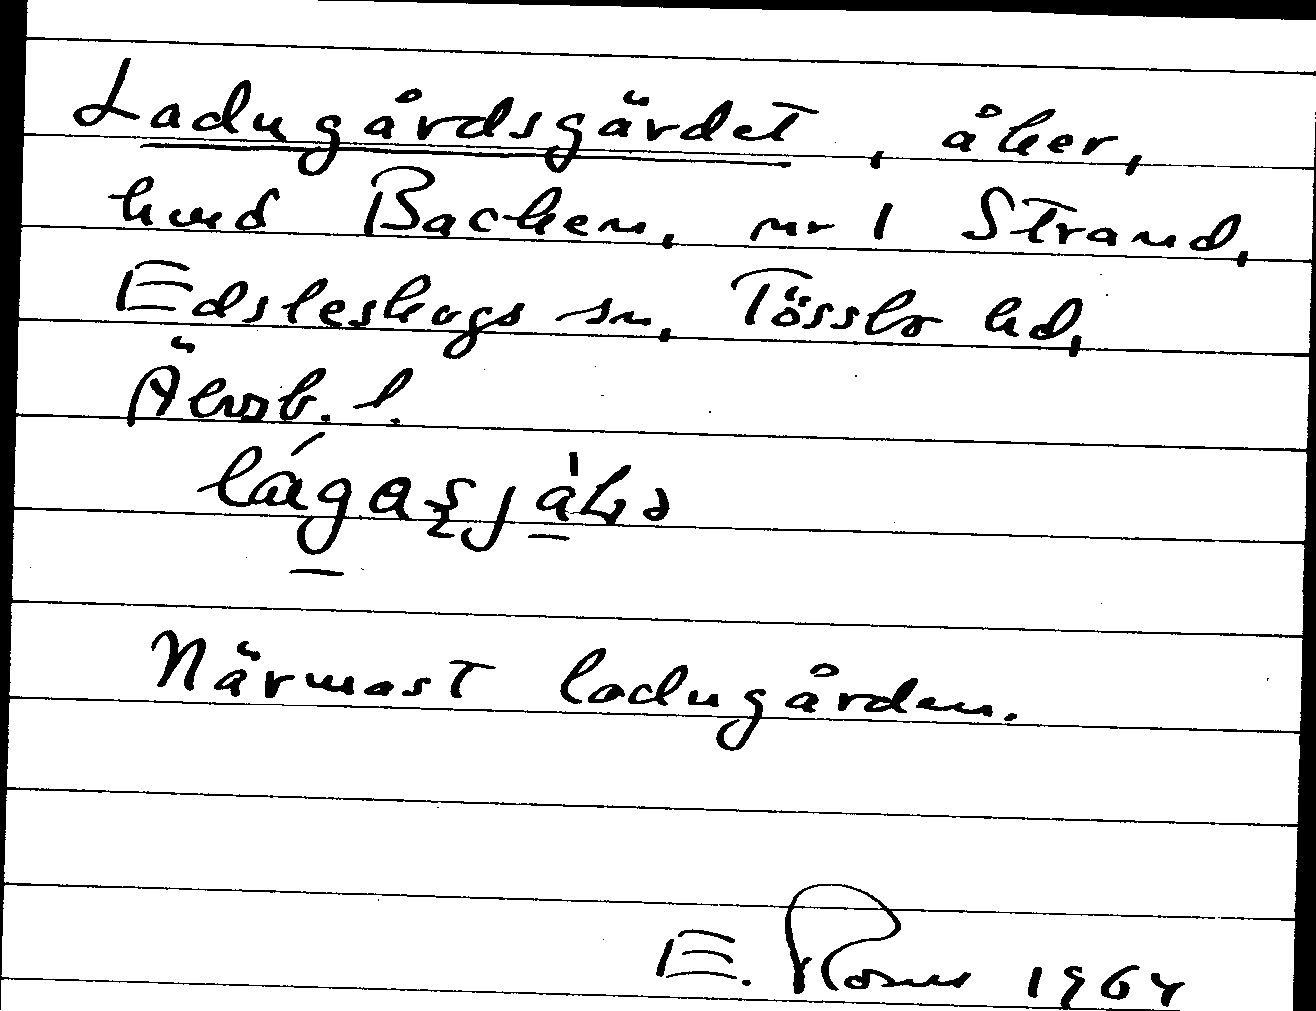 Ladugårdsgärdet, åker,
hmd Backen, nr 1 Strand,
Edsleskogs sn, Tössbo hd,
Älvsb. l.
Närmast ladugården.
E. Rosur 1964